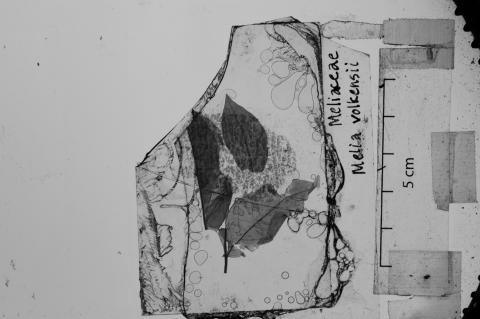 Meliaceae
Melia volkensii
5 cm